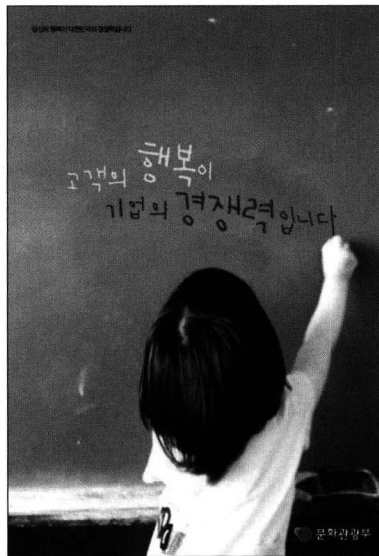 당신의 행복이 대한민국의 경쟁력입니다
고객의 행복이
기업의 경쟁력입니다
문화관광부